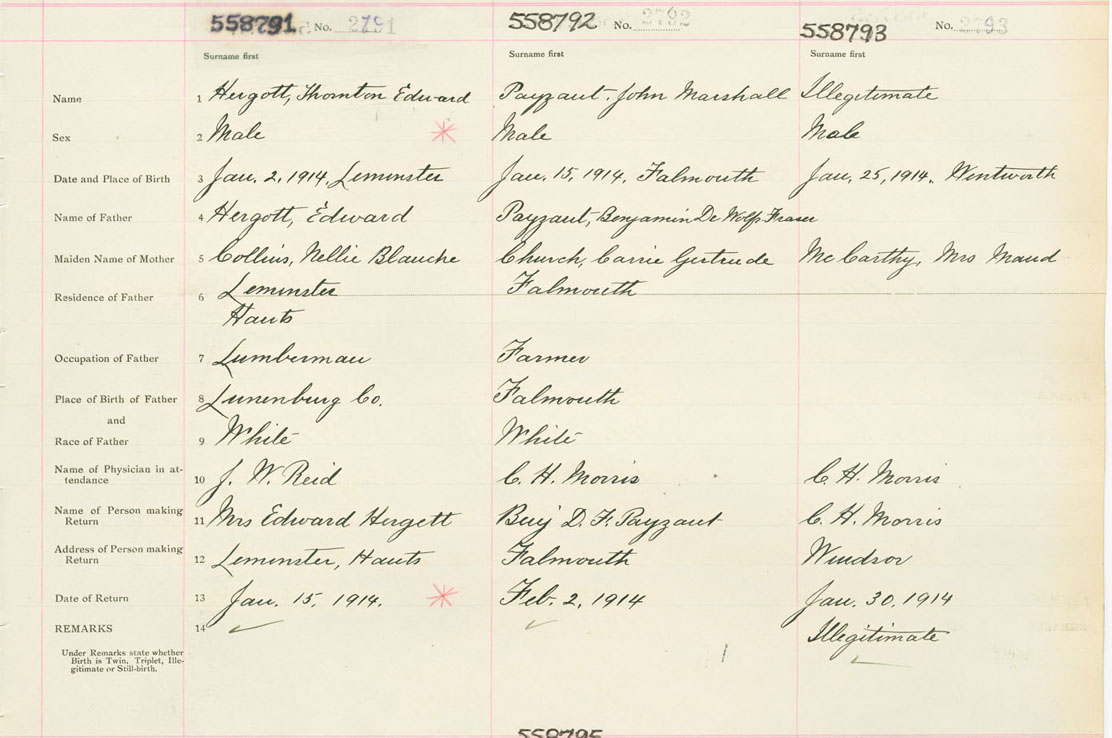 558791 No. 2791 558792 No. 2792 558793 No. 2793
Surname first Surname first Surname first
Name 1 Hergott, Thornton Edward Payzant, John Marshall Illegitimate
Sex 2 Male Male Male
Date and Place of Birth 3 Jan. 2, 1914, Leminster Jan. 15, 1914. Falmouth Jan. 25, 1914. Wentworth
Name of Father 4 Hergott, Edward Payzant, Benjamin De Wolfe Fraser
Maiden Name of Mother 5 Collins, Nellie Blanche Church, Carrie Gertrude McCarthy, Mrs Maud
Residence of Father 6 Leminster Falmouth
Hants
Occupation of Father 7 Lumberman Farmer
Place of Birth of Father 8 Lunenburg Co. Falmouth
and
Race of Father 9 White White
Name of Physician in at-
tendance 10 J. W. Reid C. H. Morris C. H. Morris
Name of Person making
Return 11 Mrs Edward Hergett Benj D. F. Payzant C. H. Morris
Address of Person making
Return 12 Leminster, Hants Falmouth Windsor
Date of Return 13 Jan. 15, 1914. Feb. 2, 1914 Jan. 30, 1914
REMARKS 14 Illegitimate
Under Remarks state whether
Birth is Twin, Triplet, Ille-
gitimate or Still-birth.
558795